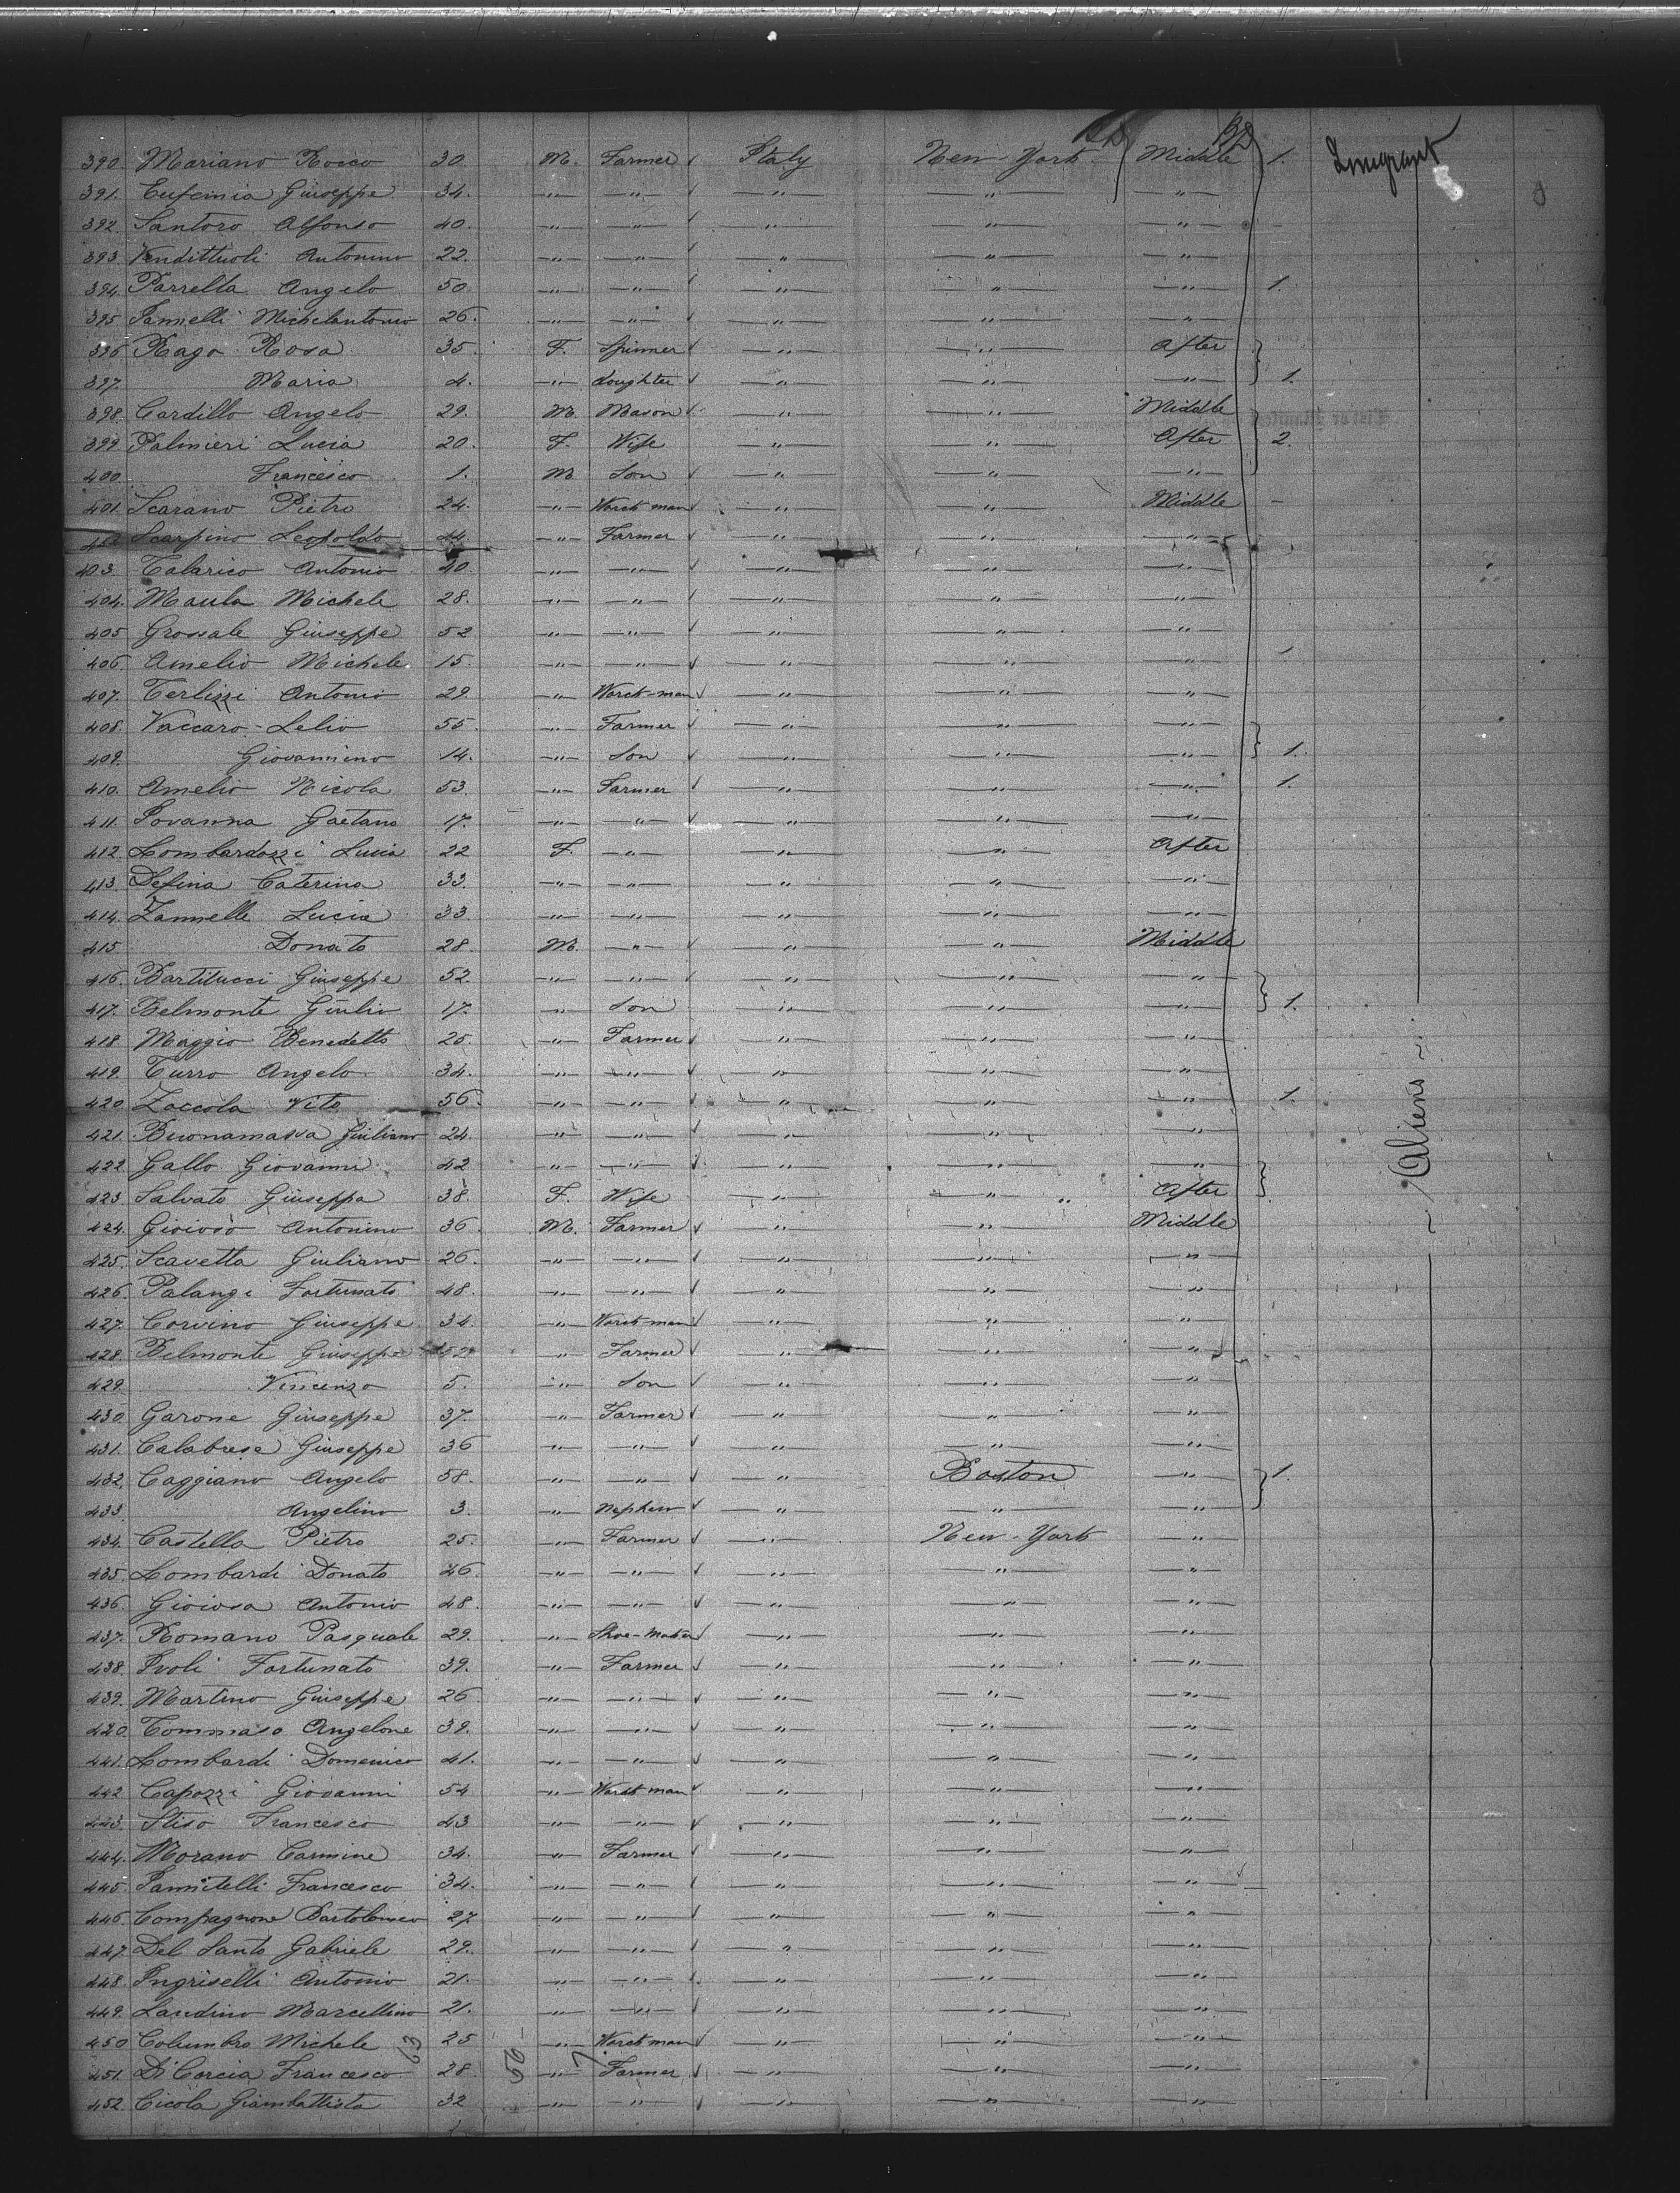 390. Mariano Rocco 30. M. Farmer Italy New-York Middle 1. Imegrant
391. Eufemia Giuseppe 34. " " " " "
392. Santoro Alfonso 40. " " " " " -
393. Vendittuoli Antonino 22. " " " " "
394. Parrella Angelo 50 " " " " " 1.
395 Iannelli Michelantonio 26. " " " " "
396 Rago Rosa 35. F. Spinner " " After
397. Maria 4. " doughter " " " 1.
398. Cardillo Angelo 29. M. Mason " " Middle
399. Palmieri Lucia 20. F. Wife " " After 2.
400. Francesco 1. M. Son " " "
401. Scarano Pietro 24. " Worck-man " " Middle -
Scarpino Leopoldo 44. " Farmer " " "
403. Talarico Antonio 40 " " " " "
404. Maula Michele 28. " " " " "
405 Grossale Giuseppe 52 " " " " "
406. Amelio Michele 15. " " " " " 1
407. Terlizzi Antonio 29 " Worck-man " " "
408. Vaccaro Lelio 55. " Farmer " " "
409. Giovannino 14. " Son " " " 1.
410. Amelio Nicola 53. " Farmer " " " 1.
411. Iovanna Gaetano 17. " " " " "
412. Lombardozzi Lucia 22 F. " " " After
413. Defina Caterina 33. " " " " "
414. Zannelle Lucia 33 " " " " "
415 Donato 28. M. " " " Middle
416. Bartilucci Giuseppe 52. " " " " "
417. Belmonte Giulio 17. " Son " " " 1.
418 Maggio Benedetto 25. " Farmer " " "
419. Turro Angelo 34. " " " " "
420 Zaccola Vito 56. " " " " " 1.
421. Buonamassa Giuliano 24. " " " " "
422 Gallo Giovanni 42 " " " " "
423. Salvato Giuseppa 38 F. Wife " " After
424. Gioioso Antonino 36. M. Farmer " " Middle
425. Scavetta Giuliano 26. " " " " "
426. Palangi Fortunato 48. " " " " "
427. Corvino Giuseppe 34. " Worck-man " " "
428. Belmonte Giuseppe " Farmer " " "
429. Vincenzo 5. " Son " " "
430. Garone Giuseppe 37. " Farmer " " "
431. Calabrese Giuseppe 36 " " " " "
432. Caggiano Angelo 58. " " " Boston " 1.
433 Angelino 3. " Nephew " " "
434. Castella Pietro 25. " Farmer " New-York "
435. Lombardi Donato 46. " " " " "
436. Gioiosa Antonio 48. " " " " "
437. Romano Pasquale 29. " Shoe-Maker " " "
438. Ivoli Fortunato 39. " Farmer " " "
439. Martino Giuseppe 26 " " " " "
420 Tommaso Angelone 39. " " " " "
441. Lombardi Domenico 41. " " " " "
442 Capozzi Giovanni 54 " Worck-man " " "
443 Stiso Francesco 43 " " " " "
444. Morano Carmine 34. " Farmer " " "
445. Iannitelli Francesco 34. " " " " "
446. Compagnone Bartolomeo 27 " " " " "
447. Del Santo Gabriele 29. " " " " "
448. Ingriselli Antonio 21. " " " " "
449. Landino Marcellino 21. " " " " "
450 Columbro Michele 25 " Worck-man " " "
451. Di Corcia Francesco 28. " Farmer " " "
452. Cicola Giambattista 32 " " " " "
Aliens
63
56
7